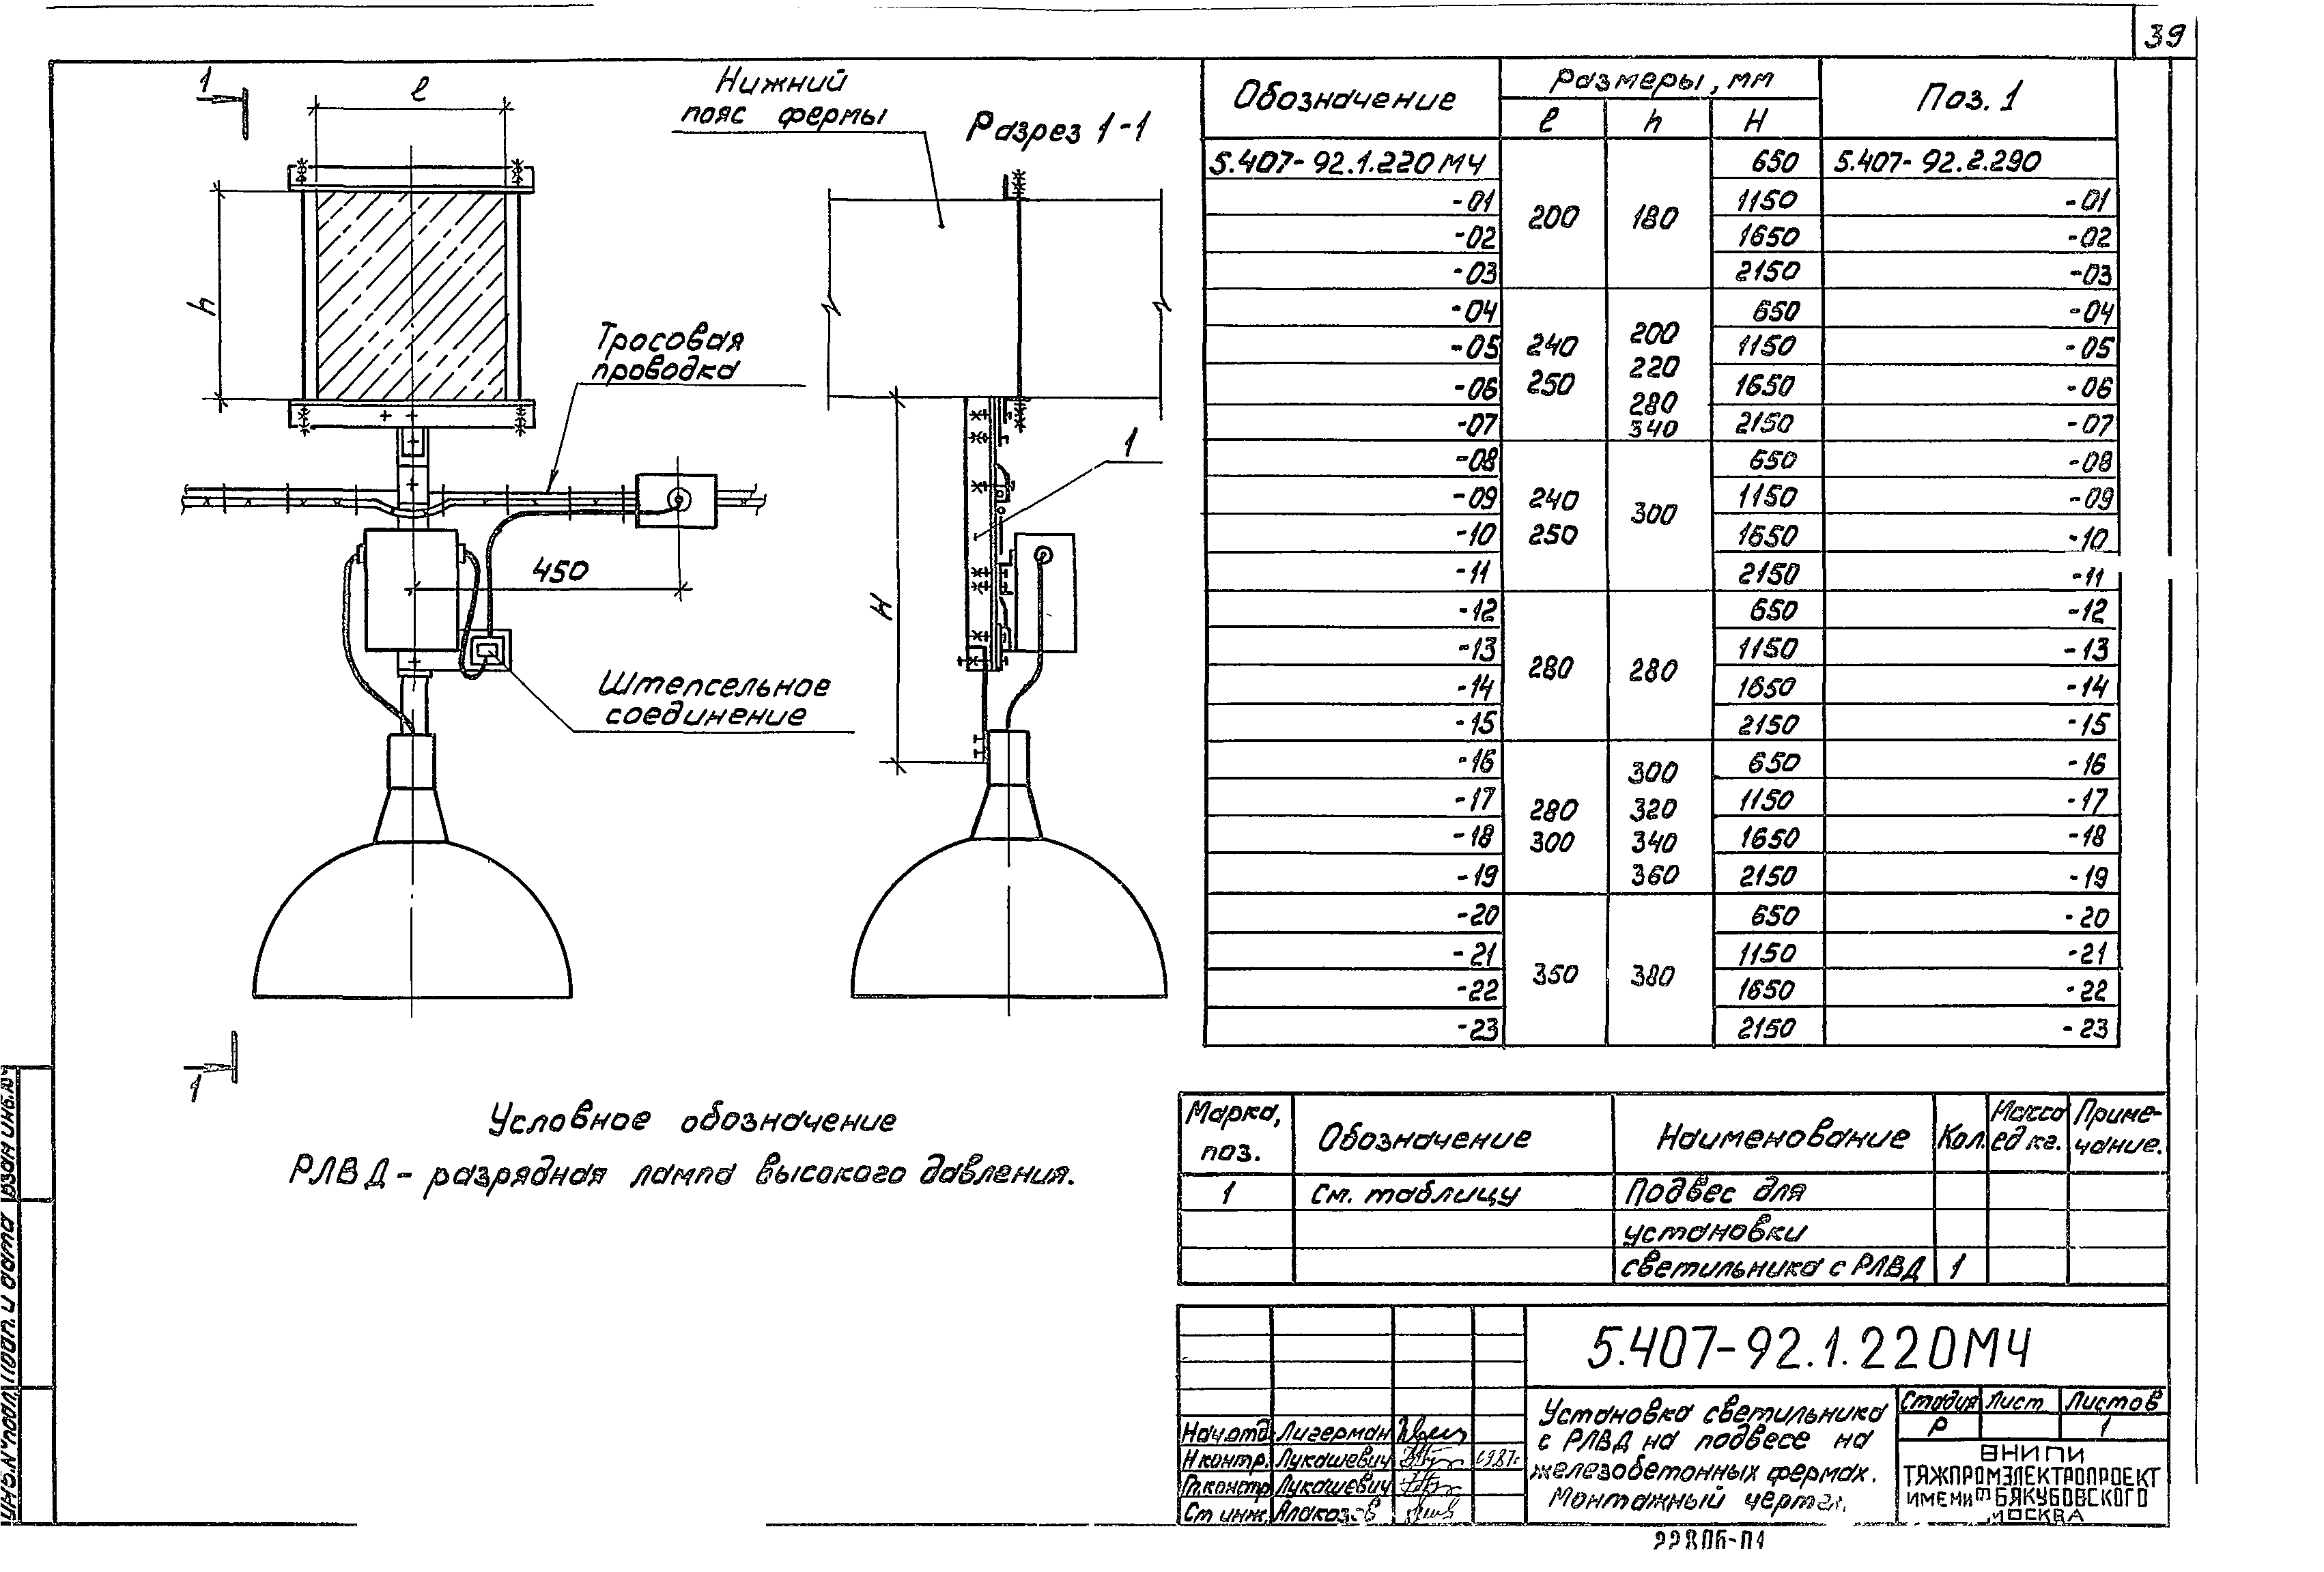 39
1
l
Нижний
пояс фермы
Разрез 1-1
h
Тросовая
проводка
1
450
H
Штепсельное
соединение
1
Условное обозначение
РЛВД - разрядная лампа высокого давления.
Обозначение Размеры, мм Поз. 1
l h H
5.407-92.1.220МЧ 650 5.407-92.2.290
-01 1150 -01
200 180
-02 1650 -02
-03 2150 -03
-04 650 -04
200
-05 240 1150 -05
220
-06 250 1650 -06
280
-07 340 2150 -07
-08 650 -08
-09 240 1150 -09
300
-10 250 1650 -10
-11 2150 -11
-12 650 -12
-13 1150 -13
280 280
-14 1650 -14
-15 2150 -15
-16 300 650 -16
-17 280 320 1150 -17
-18 300 340 1650 -18
-19 360 2150 -19
-20 650 -20
-21 1150 -21
350 380
-22 1650 -22
-23 2150 -23
Марка, поз. Обозначение Наименование Кол. Масса ед кг. Приме-чание.
1 См. таблицу Подвес для
установки
светильника с РЛВД 1
5.407-92.1.220МЧ
Установка светильника
с РЛВД на подвесе на
железобетонных фермах.
Монтажный
Стадия Лист Листов
Р 1
ВНИПИ
ТЯЖПРОМЭЛЕКТРОПРОЕКТ
ИМЕНИ Ф.Б.ЯКУБОВСКОГО
МОСКВА
Нач.отд. Лигерман
Н контр. Лукашевич 1987г.
Гл.констр Лукашевич
Ст инж.
22806-01
Инв.№ подл. Подп. и дата Взам инв.№